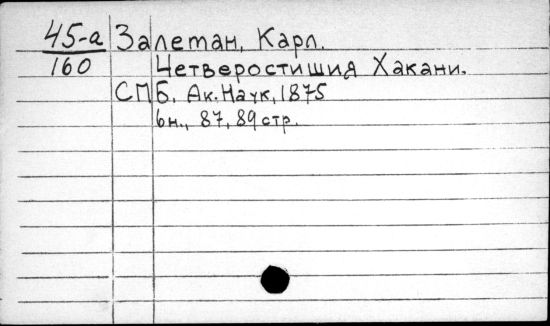 45-а Залетан, Карл.
160 Четверостишия Хакани.
СПБ, Ак. Наук, 1875
6н., 87, 89 стр.